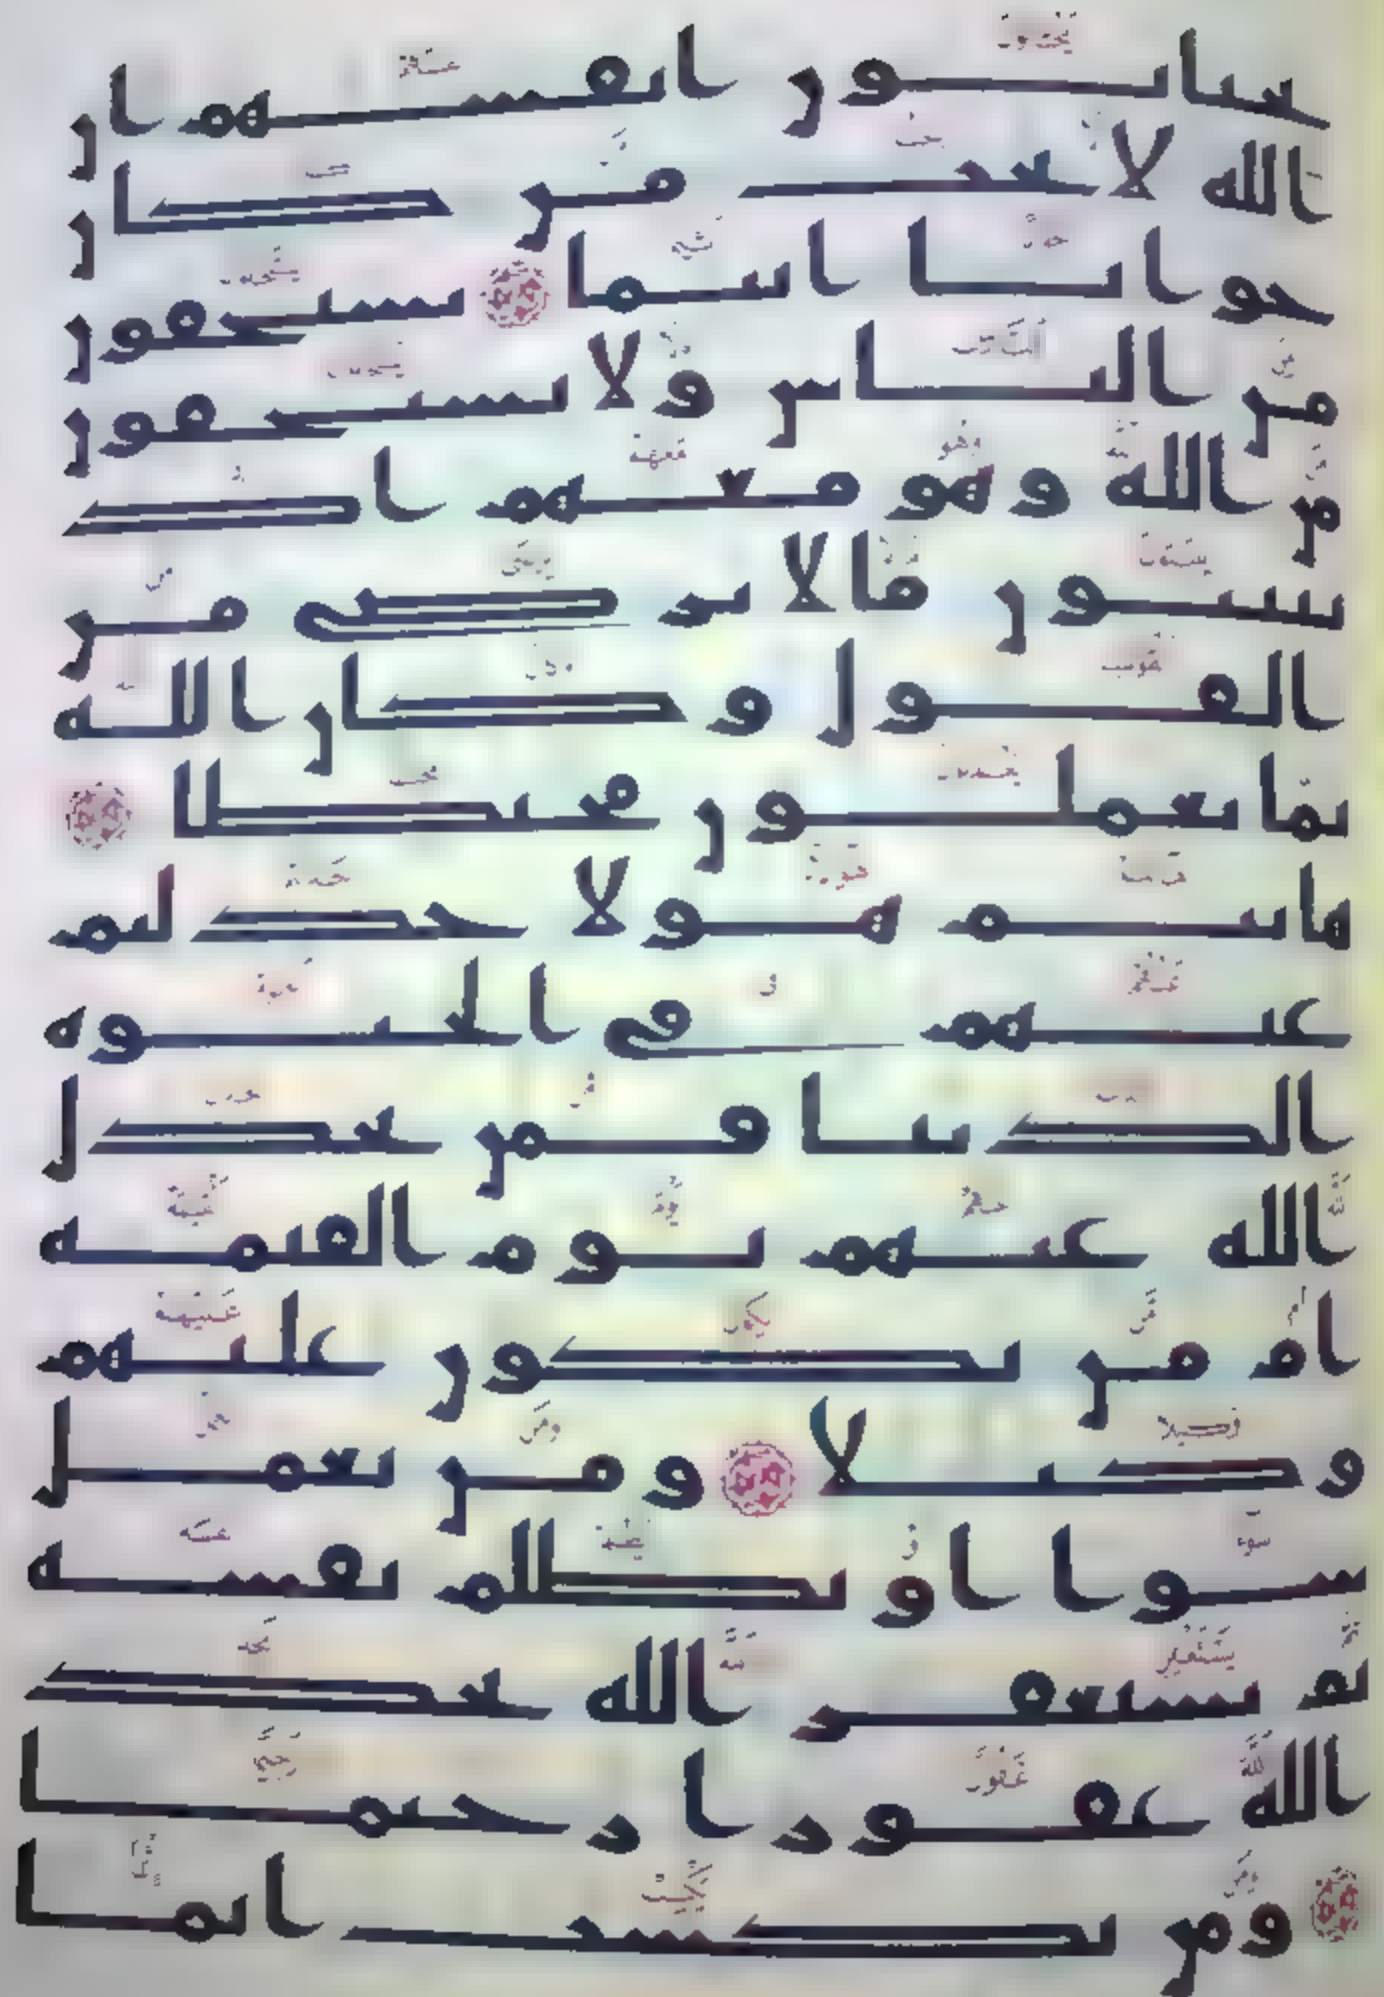 يختانون انفسهم ان
الله لا يحب من كان
خوانا اثيما يستخفون
من الناس ولا يستخفون
من الله وهو معهم اذ
يبيتون ما لا يرضى من
القول وكان الله
بما يعملون محيطا
هانتم هولا جدلتم
عنهم في الحيوه
الدنيا فمن يجدل
الله عنهم يوم القيمه
ام من يكون عليهم
وكيلا ومن يعمل
سوا او يظلم نفسه
ثم يستغفر الله يجد
الله غفورا رحيما
ومن يكسب اثما